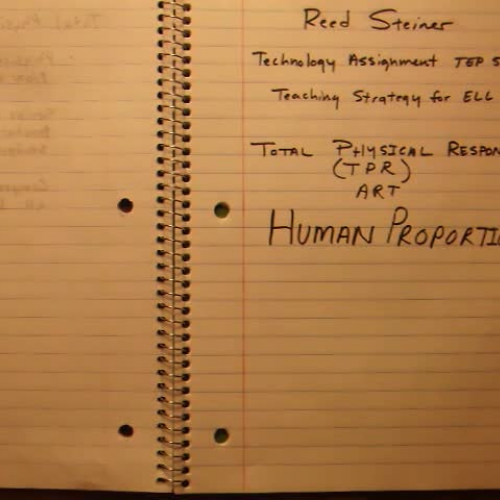 Reed Steiner
Technology Assignment TEP 5
Teaching Strategy for ELL
TOTAL PHYSICAL RESPON
(TPR)
ART
HUMAN PROPORTI